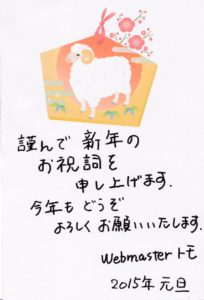 謹んで 新年の
お祝詞を
申し上げます.
今年も どうぞ
よろしく お願いいたします.
Webmaster トモ
2015年 元旦